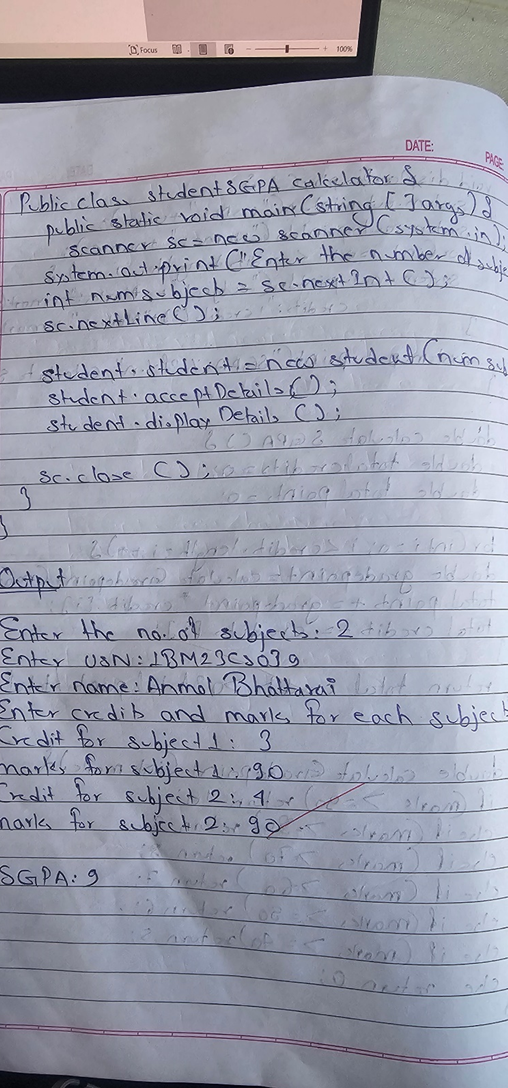 Focus
100%
DATE:
PAGE
Public class studentSGPA calculator {
public static void main (string [] args) {
scanner sc = new scanner (system.in);
System.out.print ("Enter the number of subje
int numsubjects = sc.nextInt ();
sc.nextLine ();
student. student = new student (num su
student.acceptDetails ();
student.display Details ();
sc.close ();
}
}
Output
Enter the no. of subjects: 2
Enter USN: 1BM23CS039
Enter name: Anmol Bhattarai
Enter credits and marks for each subject
Credit for subject 1: 3
marks for subject 1: 90
Credit for subject 2: 4
marks for subject 2: 90
SGPA: 9